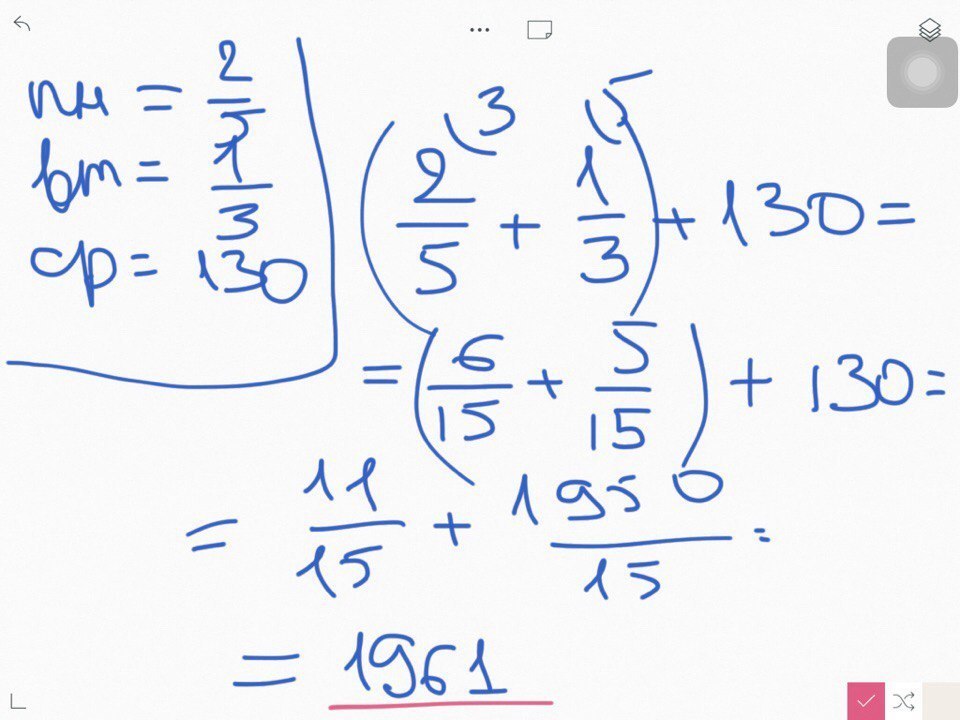 пн = 2/5
вт = 1/3
ср = 130
(2/5 (3 + 1/3 (5) + 130 =
= (6/15 + 5/15) + 130 =
= 11/15 + 1950/15 =
= 1961